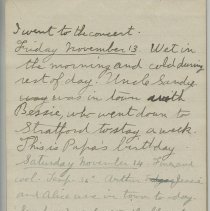 I went to the concert.
Friday November 13. Wet in
the morning and cold during
rest of day. Uncle Sandy
was in town with
Bessie, who went down to
Stratford to stay a week.
This is Papa's birthday.
Saturday November 14
cool. Temp. 36°.
and Alice was in town to-day.